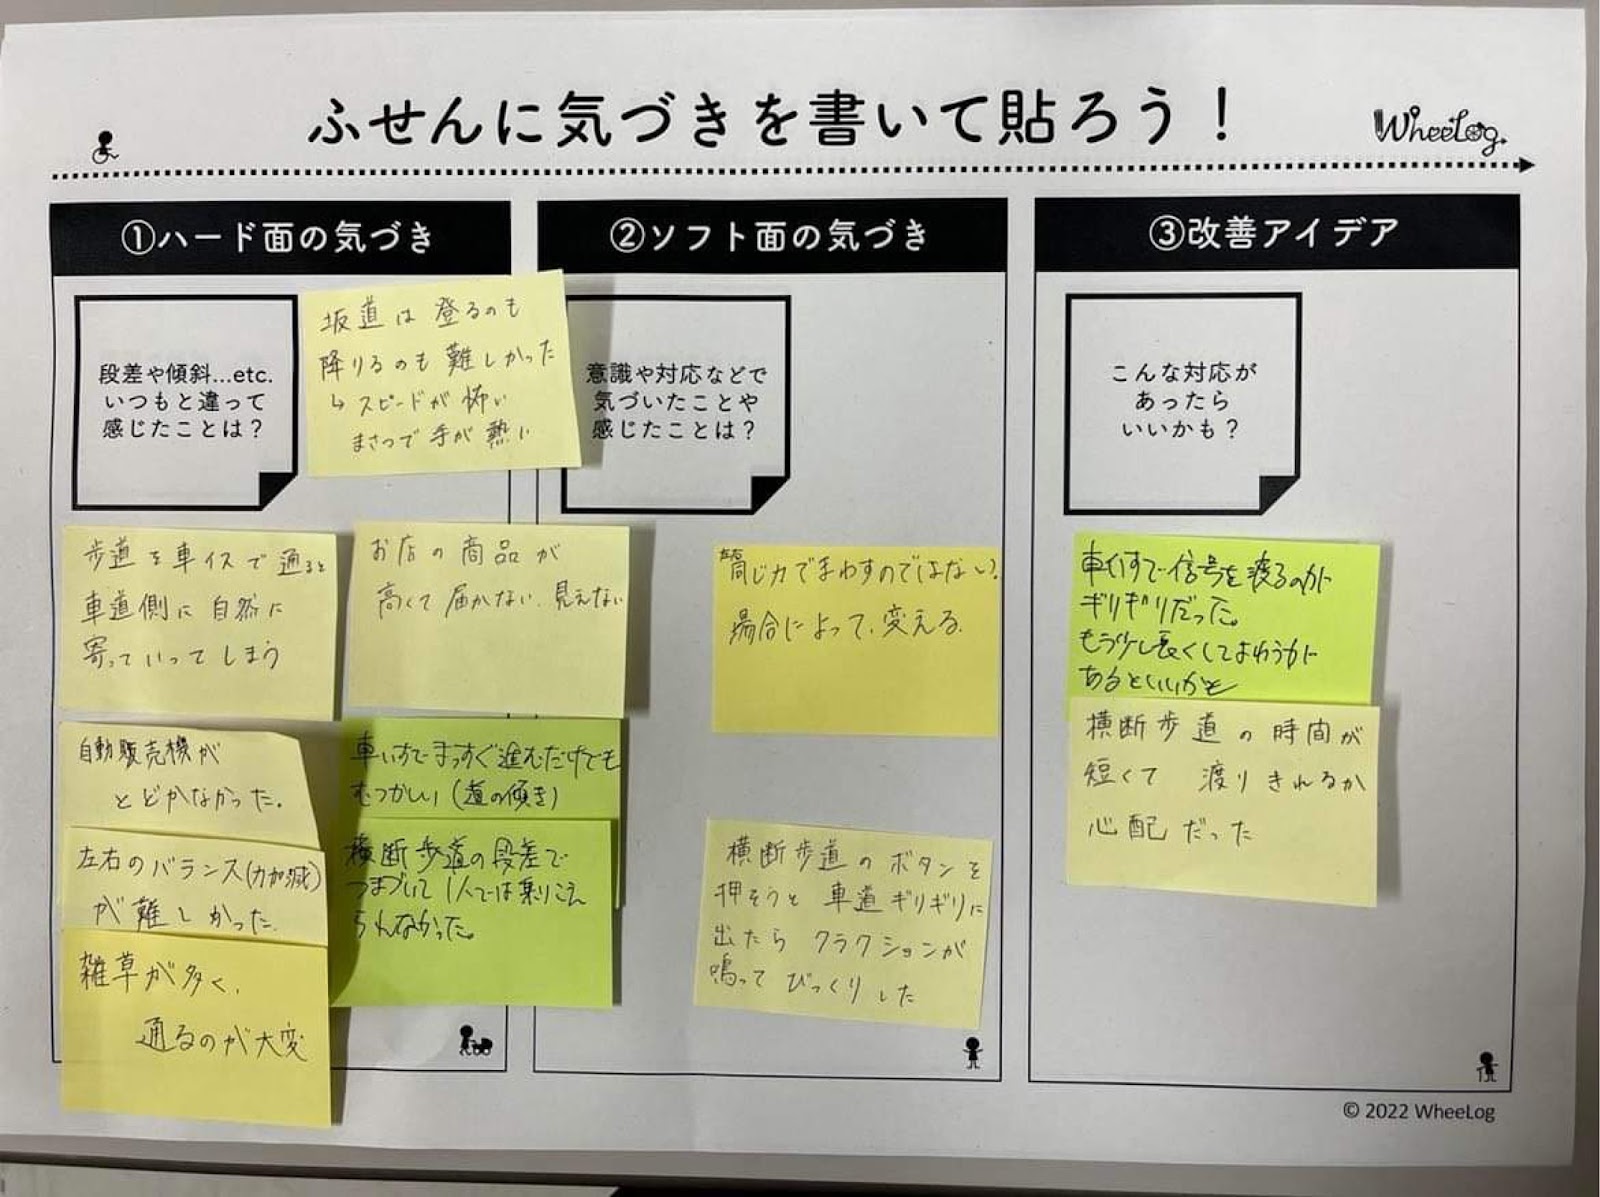 ふせんに気づきを書いて貼ろう！
WheeLog
①ハード面の気づき
段差や傾斜...etc.
いつもと違って
感じたことは？
坂道は登るのも
降りるのも難しかった
↳スピードが怖い
まさつで手が熱い
歩道を車イスで通ると
車道側に自然に
寄っていってしまう
お店の商品が
高くて届かない、見えない
自動販売機が
とどかなかった。
車いすでまっすぐ進むだけでも
むつかしい(道の傾き)
左右のバランス(力加減)
が難しかった
横断歩道の段差で
つまづいて1人では乗りこえ
られなかった。
雑草が多く、
通るのが大変
②ソフト面の気づき
意識や対応などで
気づいたことや
感じたことは？
同じ力でまわすのではない。
場合によって、変える。
横断歩道のボタンを
押そうと車道ギリギリに
出たらクラクションが
鳴ってびっくりした
③改善アイデア
こんな対応が
あったら
いいかも？
車いすで信号を渡るのが
ギリギリだった。
もう少し長くして
あるといいかも
横断歩道の時間が
短くて渡りきれるか
心配だった
© 2022 WheeLog